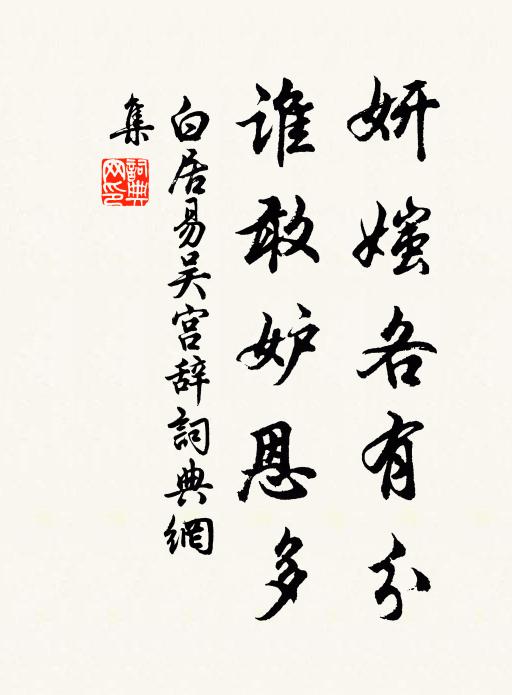 妍媸各有分
谁敢妒恩多
白居易吴宫辞詞典網
集
詞典
网印